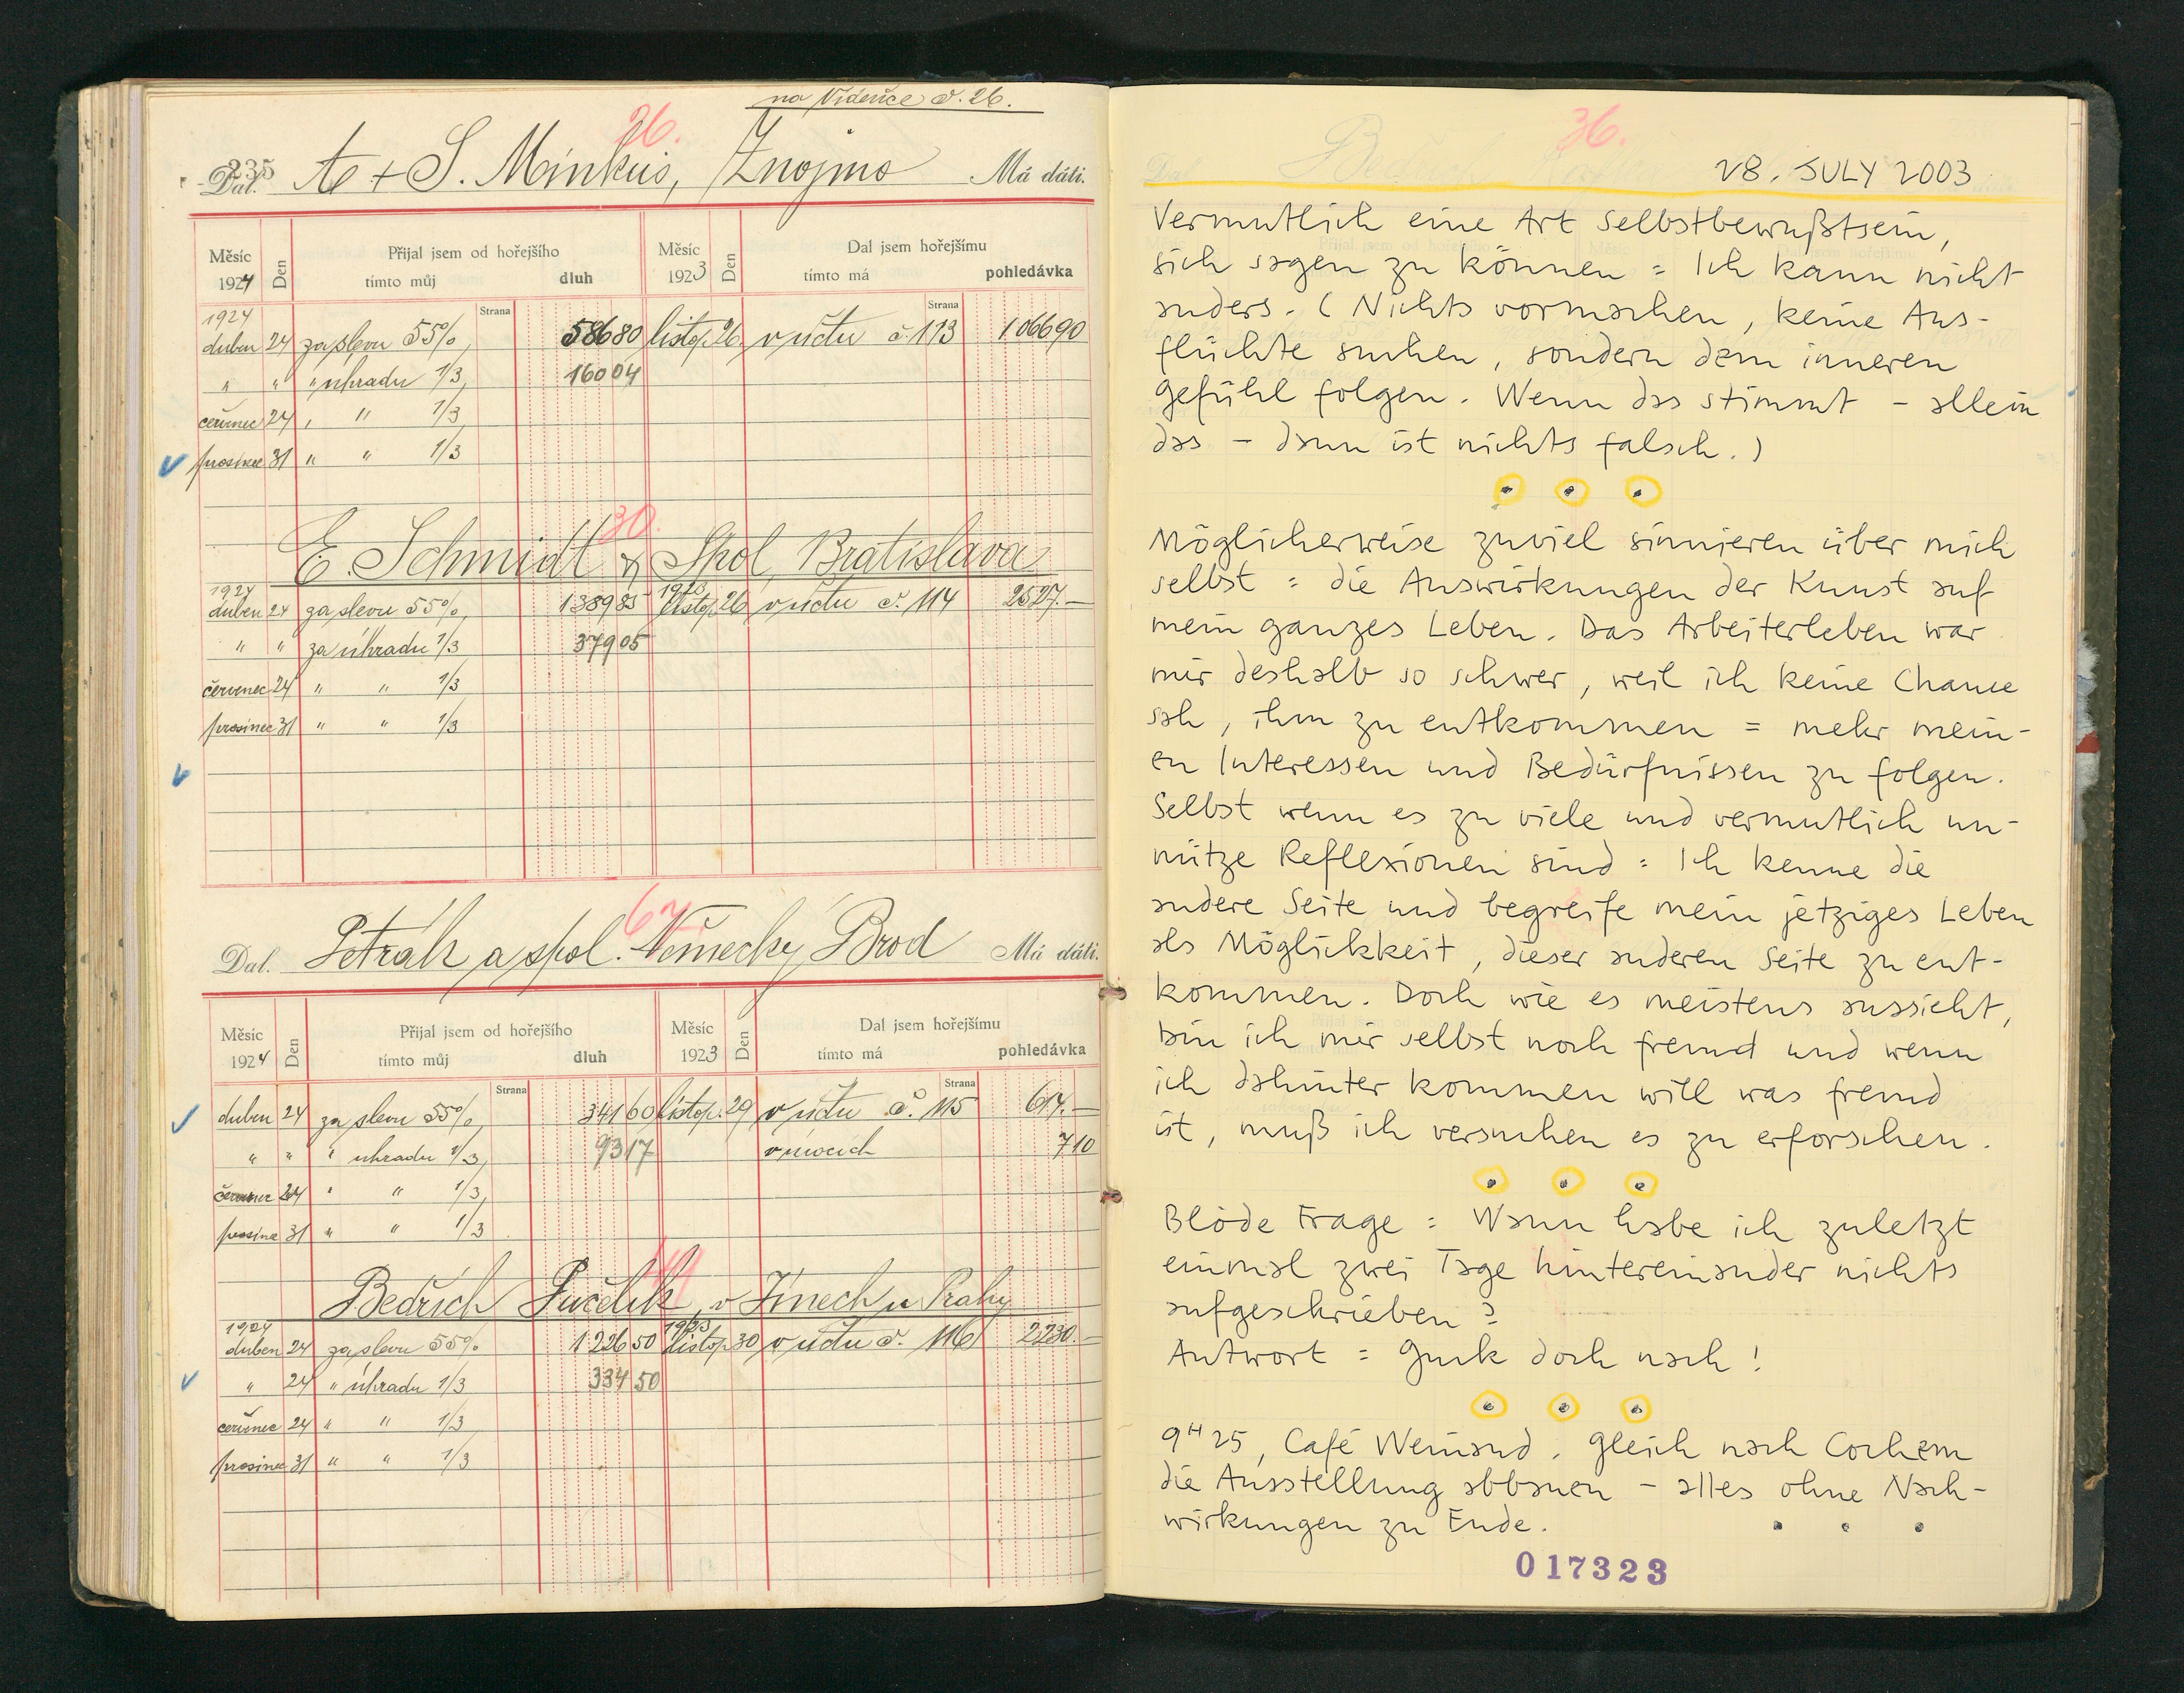 na Vídeňce č. 26.
26.
235
Dal. A + S. Minkus, Znojmo Má dáti.
Měsíc 1924 Den Přijal jsem od hořejšího tímto můj dluh Měsíc 1923 Den Dal jsem hořejšímu tímto má pohledávka
Strana Strana
1924
duben 24 za slevu 55%, 586 80 listop. 26 v účtu č. 113 1.066 90
" " " úhradu 1/3, 160 04
červenec 24 " " 1/3
prosinec 31 " " 1/3
30.
E. Schmidt & Spol, Bratislava
1924 1923
duben 24 za slevu 55%, 1389 85 listop. 26 v účtu č. 114 2527.—
" " za úhradu 1/3 379 05
červenec 24 " " 1/3
prosinec 31 " " 1/3
67
Dal. Petrák a spol. Německý Brod Má dáti.
Měsíc 1924 Den Přijal jsem od hořejšího tímto můj dluh Měsíc 1923 Den Dal jsem hořejšímu tímto má pohledávka
Strana Strana
duben 24 za slevu 55%, 341 60 listop. 29 v účtu č. 115 614.—
" " " úhradu 1/3, 93 17 7 10
červenec 24 " " 1/3,
prosinec 31 " " 1/3
Bedřich v Jinech u Prahy
1924 1923
duben 24 za slevu 55% 1226 50 listop. 30 v účtu č. 116 2230.—
" 24 " úhradu 1/3 334 50
červenec 24 " " 1/3
prosinec 31 " " 1/3
36.
28. JULY 2003
Vermutlich eine Art Selbstbewußtsein,
sich sagen zu können = Ich kann nicht
anders. (Nichts vormachen, keine Aus-
flüchte suchen, sondern dem inneren
Gefühl folgen. Wenn das stimmt – allein
das – dann ist nichts falsch.)
• • •
Möglicherweise zuviel sinnieren über mich
selbst = die Auswirkungen der Kunst auf
mein ganzes Leben. Das Arbeiterleben war
mir deshalb so schwer, weil ich keine Chance
sah, ihm zu entkommen = mehr mein-
en Interessen und Bedürfnissen zu folgen.
Selbst wenn es zu viele und vermutlich un-
nütze Reflexionen sind = Ich kenne die
andere Seite und begreife mein jetziges Leben
als Möglickkeit, dieser anderen Seite zu ent-
kommen. Doch wie es meistens aussieht,
bin ich mir selbst noch fremd und wenn
ich dahinter kommen will was fremd
ist, muß ich versuchen es zu erforschen.
• • •
Blöde Frage = Wann habe ich zuletzt
einmal zwei Tage hintereinander nichts
aufgeschrieben?
Antwort = Guck doch nach!
• • •
9H25, Café Weinand. Gleich nach Cochem
die Ausstellung abbauen – alles ohne Nach-
wirkungen zu Ende. • • •
017323